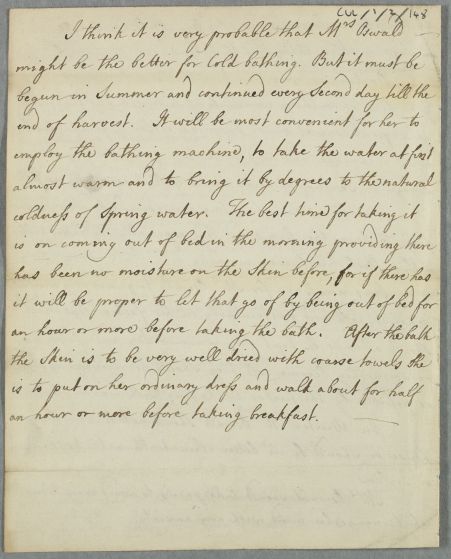 CUL/1/2/148
I think it is very probable that Mrs Oswald
might be the better for Cold bathing. But it must be
begun in Summer and continued every Second day till the
end of harvest. It will be most convenient for her to
employ the bathing machine, to take the water at first
almost warm and to bring it by degrees to the natural
coldness of Spring water. The best time for taking it
is on coming out of bed in the morning providing there
has been no moisture on the Skin before, for if there has
it will be proper to let that go of by being out of bed for
an hour or more before taking the bath. After the bath
the Skin is to be very well dried with coarse towels She
is to put on her ordinary dress and walk about for half
an hour or more before taking breakfast.